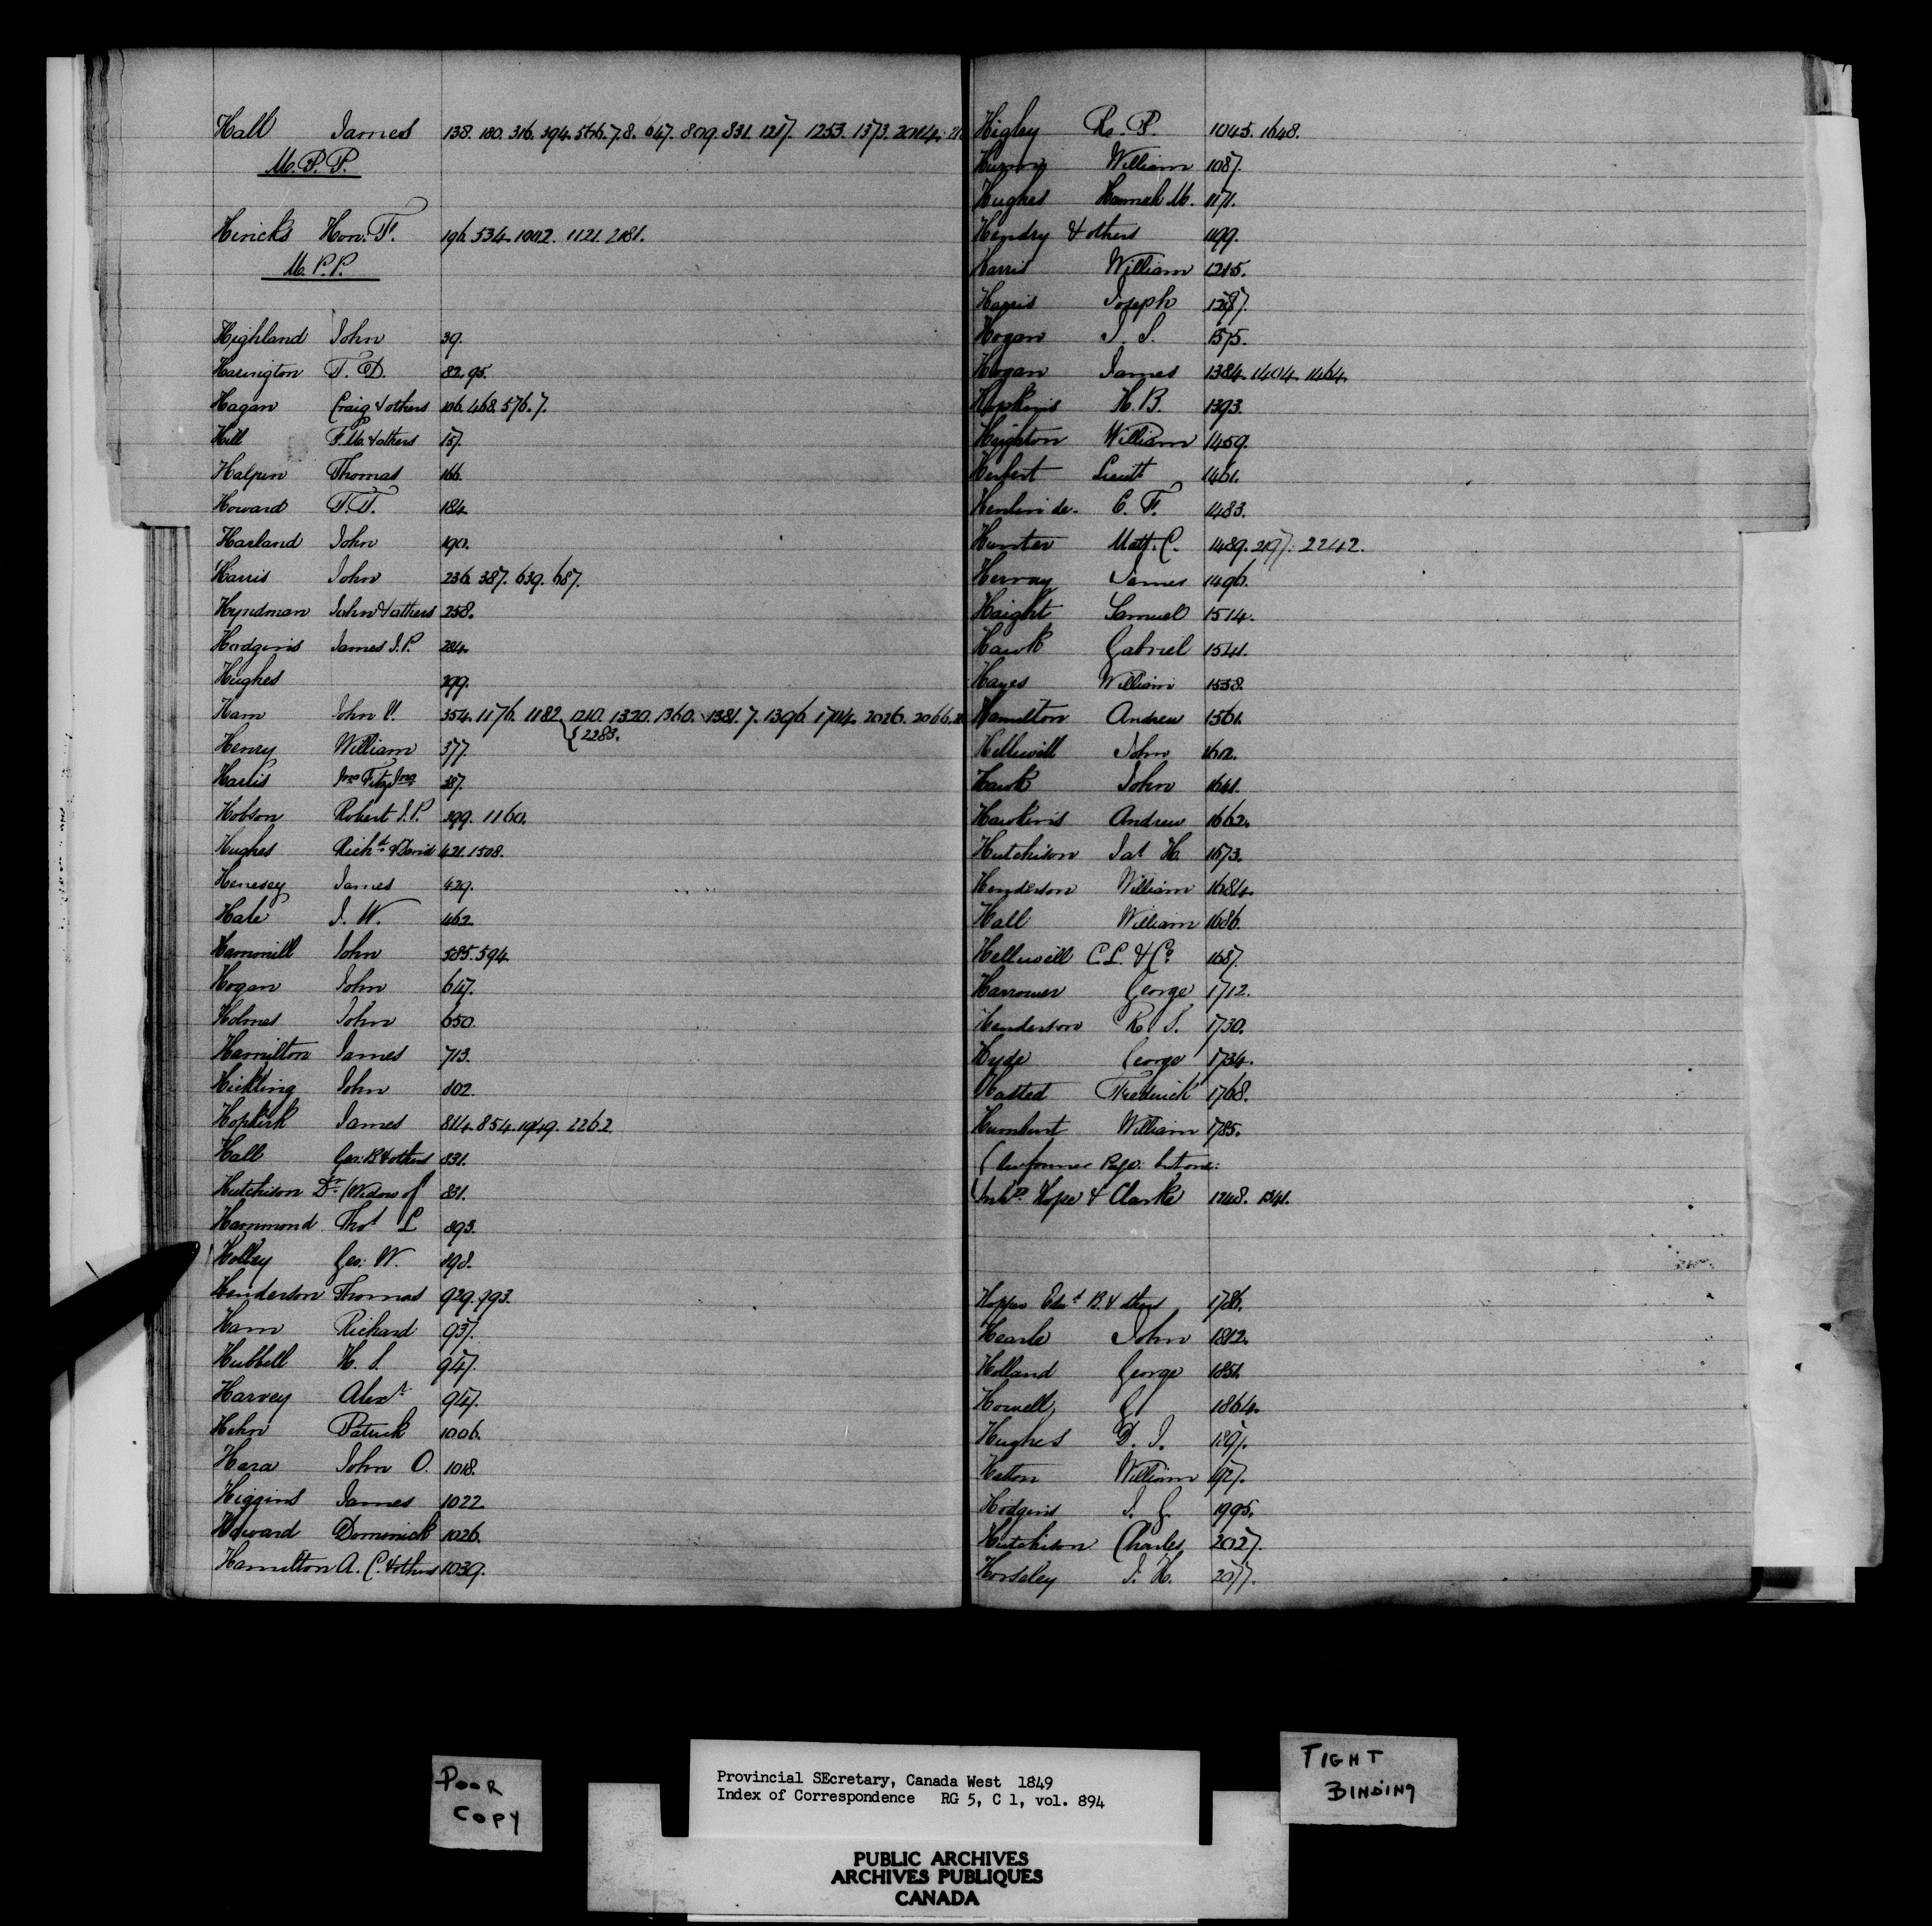 Hall James 138. 180. 316. 394. 566.7.8. 647. 809. 831. 1217. 1253. 1373. 2014.
M.P.P.
Hincks Hon. F. 196. 534. 1002. 1121. 2181.
M.P.P.
Highland John 39.
Harington T. D. 82. 95.
Hagan Craig & others 106. 468. 576.7.
Hill F.M. & others 157.
Halpin Thomas 166.
Howard T.T. 184.
Harland John 190.
Harris John 236. 387. 639. 687.
Hyndman John & others 258.
Hodgins James J.P. 284.
Hughes 299.
Ham John V. 354. 1176. 1182. 1210. 1320. 1360. 1381.7. 1396. 1704. 2026. 2066.
{2283.
Henry William 377.
Harris Jno Fitz Jno 387.
Hobson Robert J.P. 399. 1160.
Hughes Richd. & David 421. 1508.
Henesey James 429.
Hale J. W. 462
Hammill John 585. 594
Hogan John 647.
Holmes John 650.
Hamilton James 713.
Hickling John 802.
Hopkirk James 814. 854. 1949. 2262
Hall Geo. B & others 831.
Hutchison Dr. (Widow of 831.
Hammond Thos L 893.
Holley Geo: W. 898.
Henderson Thomas 929. 993.
Ham Richard 937.
Hubbell H. S. 947.
Harvey Alexr 947.
Hehn Patrick 1006.
Hara John O. 1018.
Higgins James 1022
Howard Dominick 1026.
Hamilton A. C. & others 1039.
Higley R. P. 1045. 1648.
William 1087.
Hughes Hannah M. 1171.
Hendry & others 1199.
Harris William 1215.
Harris Joseph 1287.
Hogan J. S. 1575.
Hogan James 1384. 1404. 1464.
Hopkins H. B. 1393.
Heighton William 1459.
Herbert Lieutt 1461.
C. F. 1483.
Hunter Matt. C. 1489. 2197. 2242.
Hervey James 1496.
Haight Samuel 1514.
Hawk Gabriel 1541.
Hayes William 1558.
Hamilton Andrew 1561.
Helliwell John 1612.
Hawk John 1641.
Hawkins Andrew 1662.
Hutchison Jas H. 1673.
Henderson William 1684.
Hall William 1686.
Helliwell C.L. & Co 1687.
Harrower George 1712.
Henderson R. S. 1730.
Hyde George 1734.
Hasted Frederick 1768.
Humbert William 1785.
former Page but one:
Hope & Clarke 1248. 1341.
Hopper Edwd B. & others 1786.
Hearle John 1812.
Holland George 1851.
Howell G 1864.
Hughes D. J. 1891.
Hatton William 1927.
Hodgins J. G. 1995.
Hutchison Charles 2027.
Horseley J. H. 2077.
POOR
COPY
Provincial SEcretary, Canada West 1849
Index of Correspondence RG 5, C 1, vol. 894
TIGHT
BINDING
PUBLIC ARCHIVES
ARCHIVES PUBLIQUES
CANADA